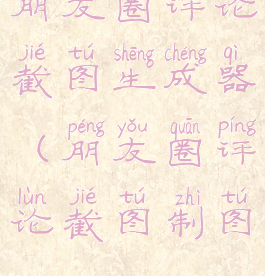 朋友圈评论
jié tú shēng chéng qì
截图生成器
péng yǒu quān píng
（朋友圈评
lùn jié tú zhì tú
论截图制图